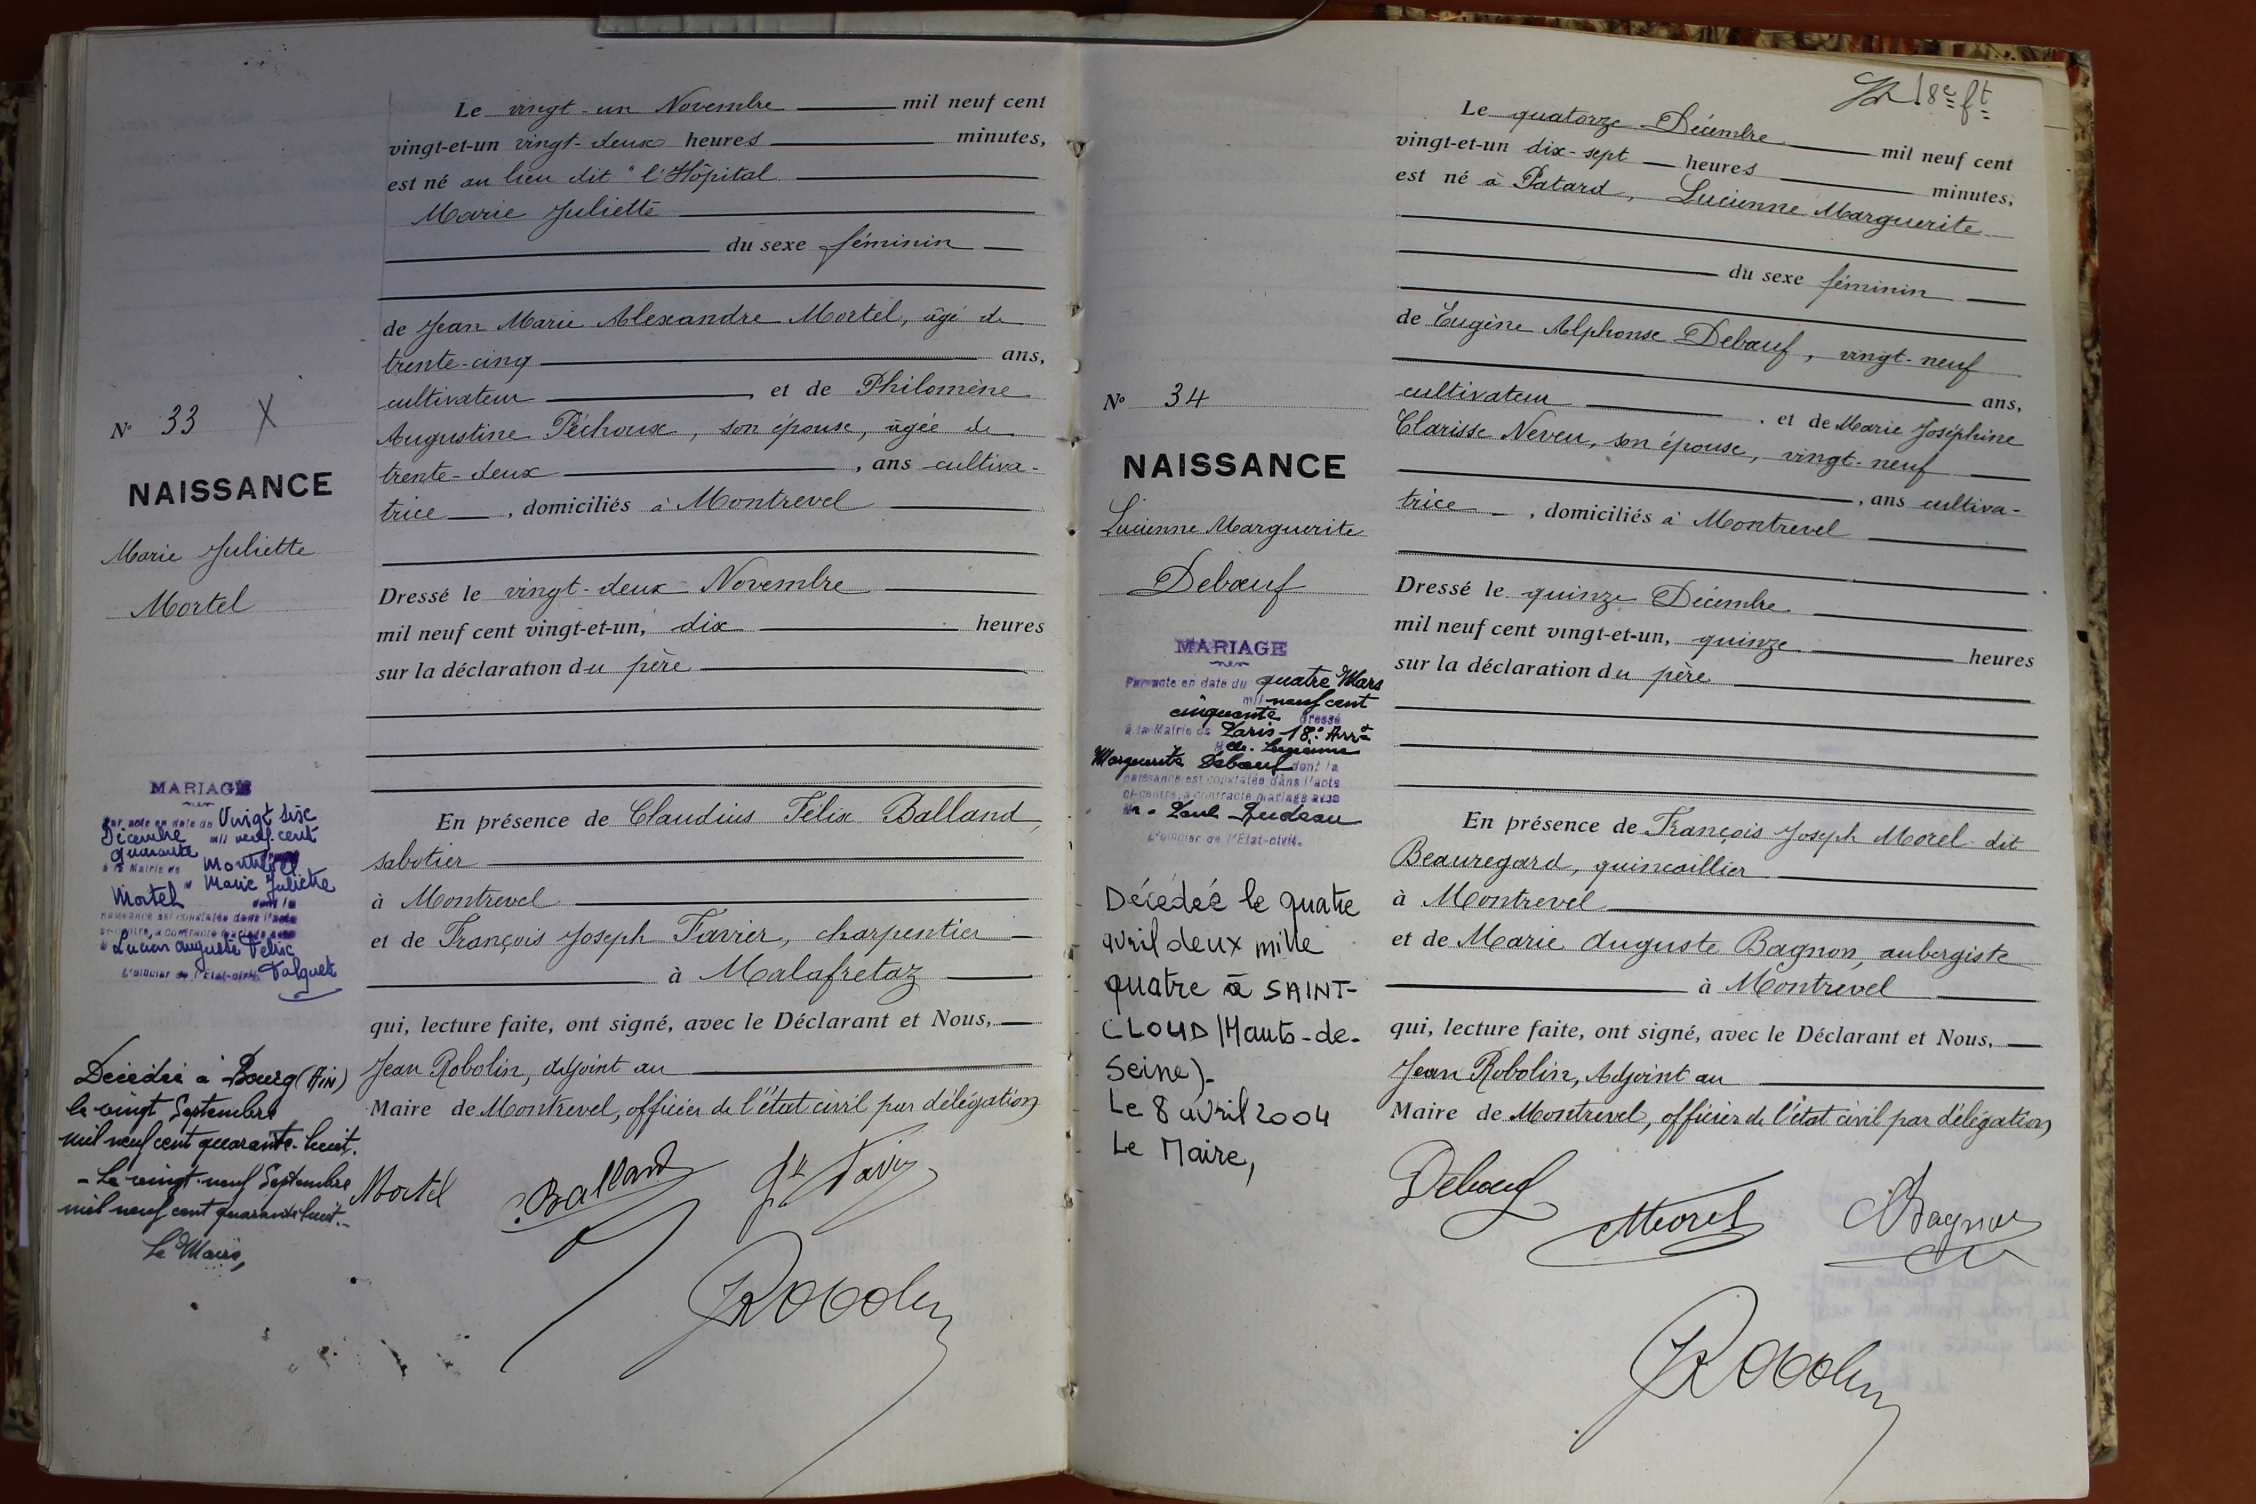 Le vingt-un Novembre mil neuf cent
vingt-et-un vingt-deux heures minutes,
est né au lieu dit "l'Hôpital
Marie Juliette
du sexe féminin
de Jean Marie Alexandre Mortel, âgé de
trente-cinq ans,
cultivateur, et de Philomène
Augustine Péchoux, son épouse, âgée de
trente-deux, ans cultiva-
trice, domiciliés à Montrevel
Dressé le vingt-deux Novembre
mil neuf cent vingt-et-un, dix heures
sur la déclaration du père
En présence de Claudius Félix Balland,
sabotier
à Montrevel
et de François Joseph Favier, charpentier
à Malafretaz
qui, lecture faite, ont signé, avec le Déclarant et Nous,
Jean Robolin, adjoint au
Maire de Montrevel, officier de l'état civil par délégation
Mortel Balland Favier
JRobolin
N° 33 X
NAISSANCE
Marie Juliette
Mortel
MARIAGE
Par acte en date du Vingt six
Décembre mil neuf cent
quarante
à la Mairie de Montrevel
Marie Juliette
Mortel dont la
naissance est constatée dans l'acte
ci-contre, a contracté mariage avec
Lucien Auguste
L'officier de l'Etat-civil
Décédée à Bourg (Ain)
le vingt Septembre
mil neuf cent quarante-huit.
- Le vingt-neuf Septembre
mil neuf cent quarante huit.-
Le Maire,
18e ft
Le quatorze Décembre mil neuf cent
vingt-et-un dix-sept heures minutes,
est né à Patard, Lucienne Marguerite
du sexe féminin
de Eugène Alphonse Debœuf, vingt-neuf
ans,
cultivateur, et de Marie Joséphine
Clarisse Neveu, son épouse, vingt-neuf
, ans cultiva-
trice, domiciliés à Montrevel
Dressé le quinze Décembre
mil neuf cent vingt-et-un, quinze heures
sur la déclaration du père
En présence de François Joseph Morel dit
Beauregard, quincaillier
à Montrevel
et de Marie Auguste Bagnon, aubergiste
à Montrevel
qui, lecture faite, ont signé, avec le Déclarant et Nous,
Jean Robolin, Adjoint au
Maire de Montrevel, officier de l'état civil par délégation
Debœuf Morel Bagnon
JRobolin
N° 34
NAISSANCE
Lucienne Marguerite
Debœuf
MARIAGE
Par acte en date du quatre Mars
mil neuf cent
cinquante dressé
à la Mairie de Paris 18e Arrt
Melle Lucienne
Marguerite Debœuf dont la
naissance est constatée dans l'acte
ci-contre, a contracté mariage avec
Mr Paul Rudeau
L'officier de l'Etat-civil.
Décédée le quatre
avril deux mille
quatre à SAINT-
CLOUD (Hauts-de-
Seine)-
Le 8 avril 2004
Le Maire,